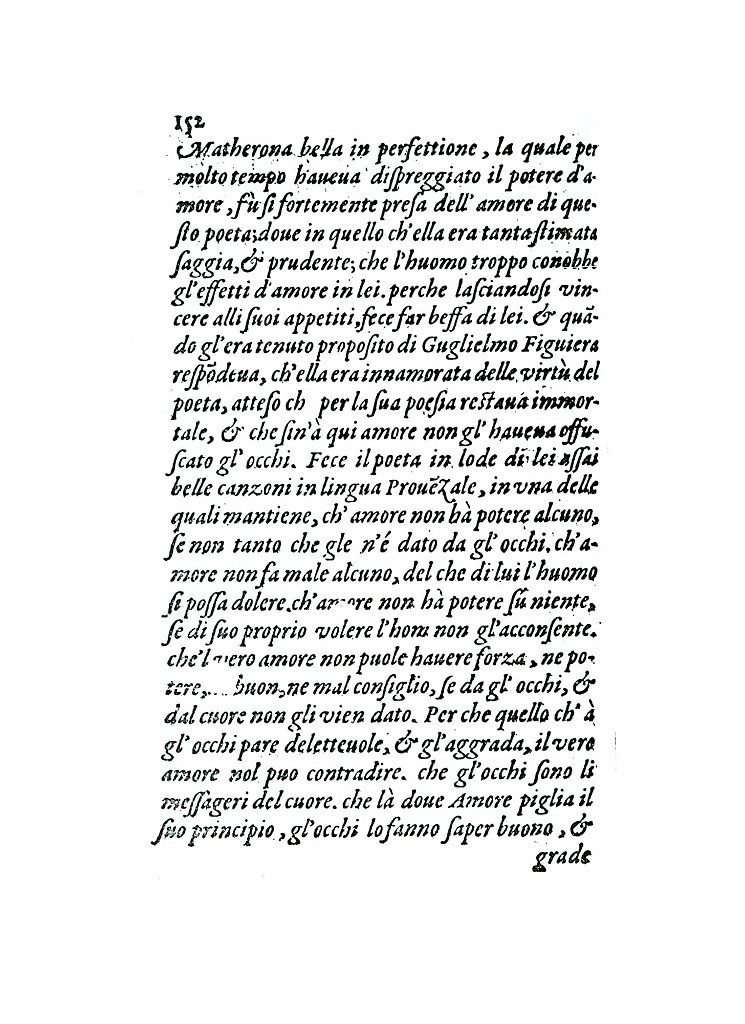 152
Matherona bella in perfettione, la quale per
molto tempo haueua dispreggiato il potere d'a-
more, fù si fortemente presa dell' amore di que-
sto poeta; doue in quello ch'ella era tanta stimata
saggia, & prudente; che l'huomo troppo conobbe
gl'effetti d'amore in lei. perche lasciandosi vin-
cere alli suoi appetiti, fece far beffa di lei. & quã-
do gl'era tenuto proposito di Guglielmo Figuiera
respõdeua, ch'ella era innamorata delle virtù del
poeta, atteso ch per la sua poesia restaua immor-
tale, & che sin'à qui amore non gl' haueua offu-
scato gl' occhi. Fece il poeta in lode di lei assai
belle canzoni in lingua Prouẽzale, in vna delle
quali mantiene, ch' amore non hà potere alcuno,
se non tanto che gle n'é dato da gl' occhi. ch'a-
more non fa male alcuno, del che di lui l'huomo
si possa dolere. ch'amore non hà potere sũ niente,
se di suo proprio volere l'hom non gl'acconsente.
che'l vero amore non puole hauere forza, ne po-
tere, buon, ne mal consiglio, se da gl' occhi, &
dal cuore non gli vien dato. Per che quello ch' à
gl' occhi pare deletteuole, & gl'aggrada, il vero
amore nol puo contradire. che gl'occhi sono li
messageri del cuore. che là doue Amore piglia il
suo principio, gl'occhi lo fanno saper buono, &
grade